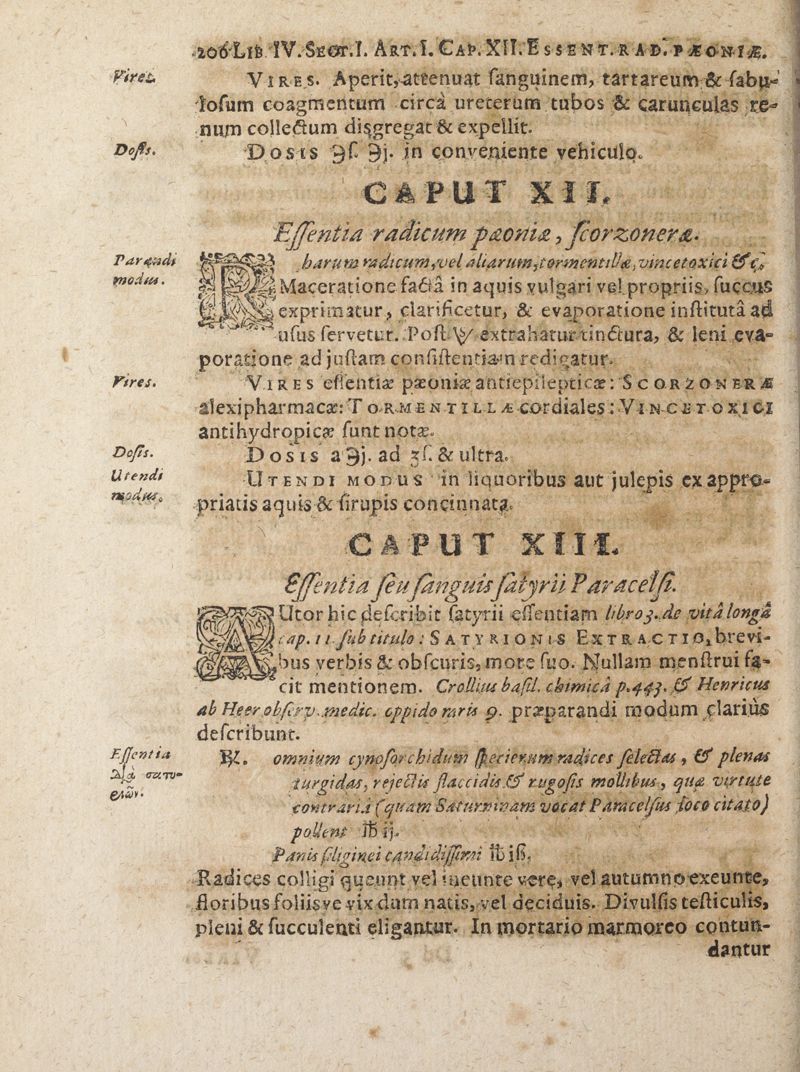 206 LIB. IV. SECT. I. ART. I. CAP. XII. ESSENT. RAD. PÆONIÆ.
Vires.
VIRES. Aperit, attenuat ſanguinem, tartareum & ſabu-
loſum coagmentum circà ureterum tubos & carunculas re-
num collectum diſgregat & expellit.
Doſis.
DOSIS ℈ſ. ℈j. in conveniente vehiculo.
CAPUT XII.
Eſſentia radicum pæoniæ, ſcorzoneræ.
Parandi
modus.
harum radicum, vel aliarum, tormentillæ, vincetoxici &c.
Maceratione factâ in aquis vulgari vel propriis, ſuccus
exprimatur, clarificetur, & evaporatione inſtitutâ ad
uſus ſervetur. Poſt extrahatur tinctura, & leni eva-
poratione ad juſtam conſiſtentiam redigatur.
Vires.
VIRES eſſentiæ pæoniæ antiepilepticæ: SCORZONERÆ
alexipharmacæ: TORMENTILLÆ cordiales: VINCETOXICI
antihydropicæ ſunt notæ.
Doſis.
DOSIS a ℈j. ad ʒſ. & ultra.
Utendi
modus.
UTENDI MODUS in liquoribus aut julepis ex appro-
priatis aquis & ſirupis concinnata.
CAPUT XIII.
Eſſentia ſeu ſanguis ſatyrii Paracelſi.
AUtor hic deſcribit ſatyrii eſſentiam libro 3. de vitâ longâ
cap. 11. ſub titulo: SATYRIONIS EXTRACTIO, brevi-
bus verbis & obſcuris, more ſuo. Nullam menſtrui fa-
cit mentionem. Crollius baſil. chimicâ p. 443. & Henricus
ab Heer obſerv. medic. oppido raris 9. præparandi modum clariùs
deſcribunt.
Eſſentia
℞. omnium cynoſorchidum ſpecierum radices ſelectas, & plenas
turgidas, rejectis flaccidis & rugoſis mollibus, quæ virtute
contrariâ (quam Saturninam vocat Paracelſus loco citato)
pollent ℔ ij.
Panis ſiliginei candidiſſimi ℔ iß.
Radices colligi queunt vel ineunte vere, vel autumno exeunte,
floribus foliisve vix dum natis, vel deciduis. Divulſis teſticulis,
pleni & ſucculenti eligantur. In mortario marmoreo contun-
dantur